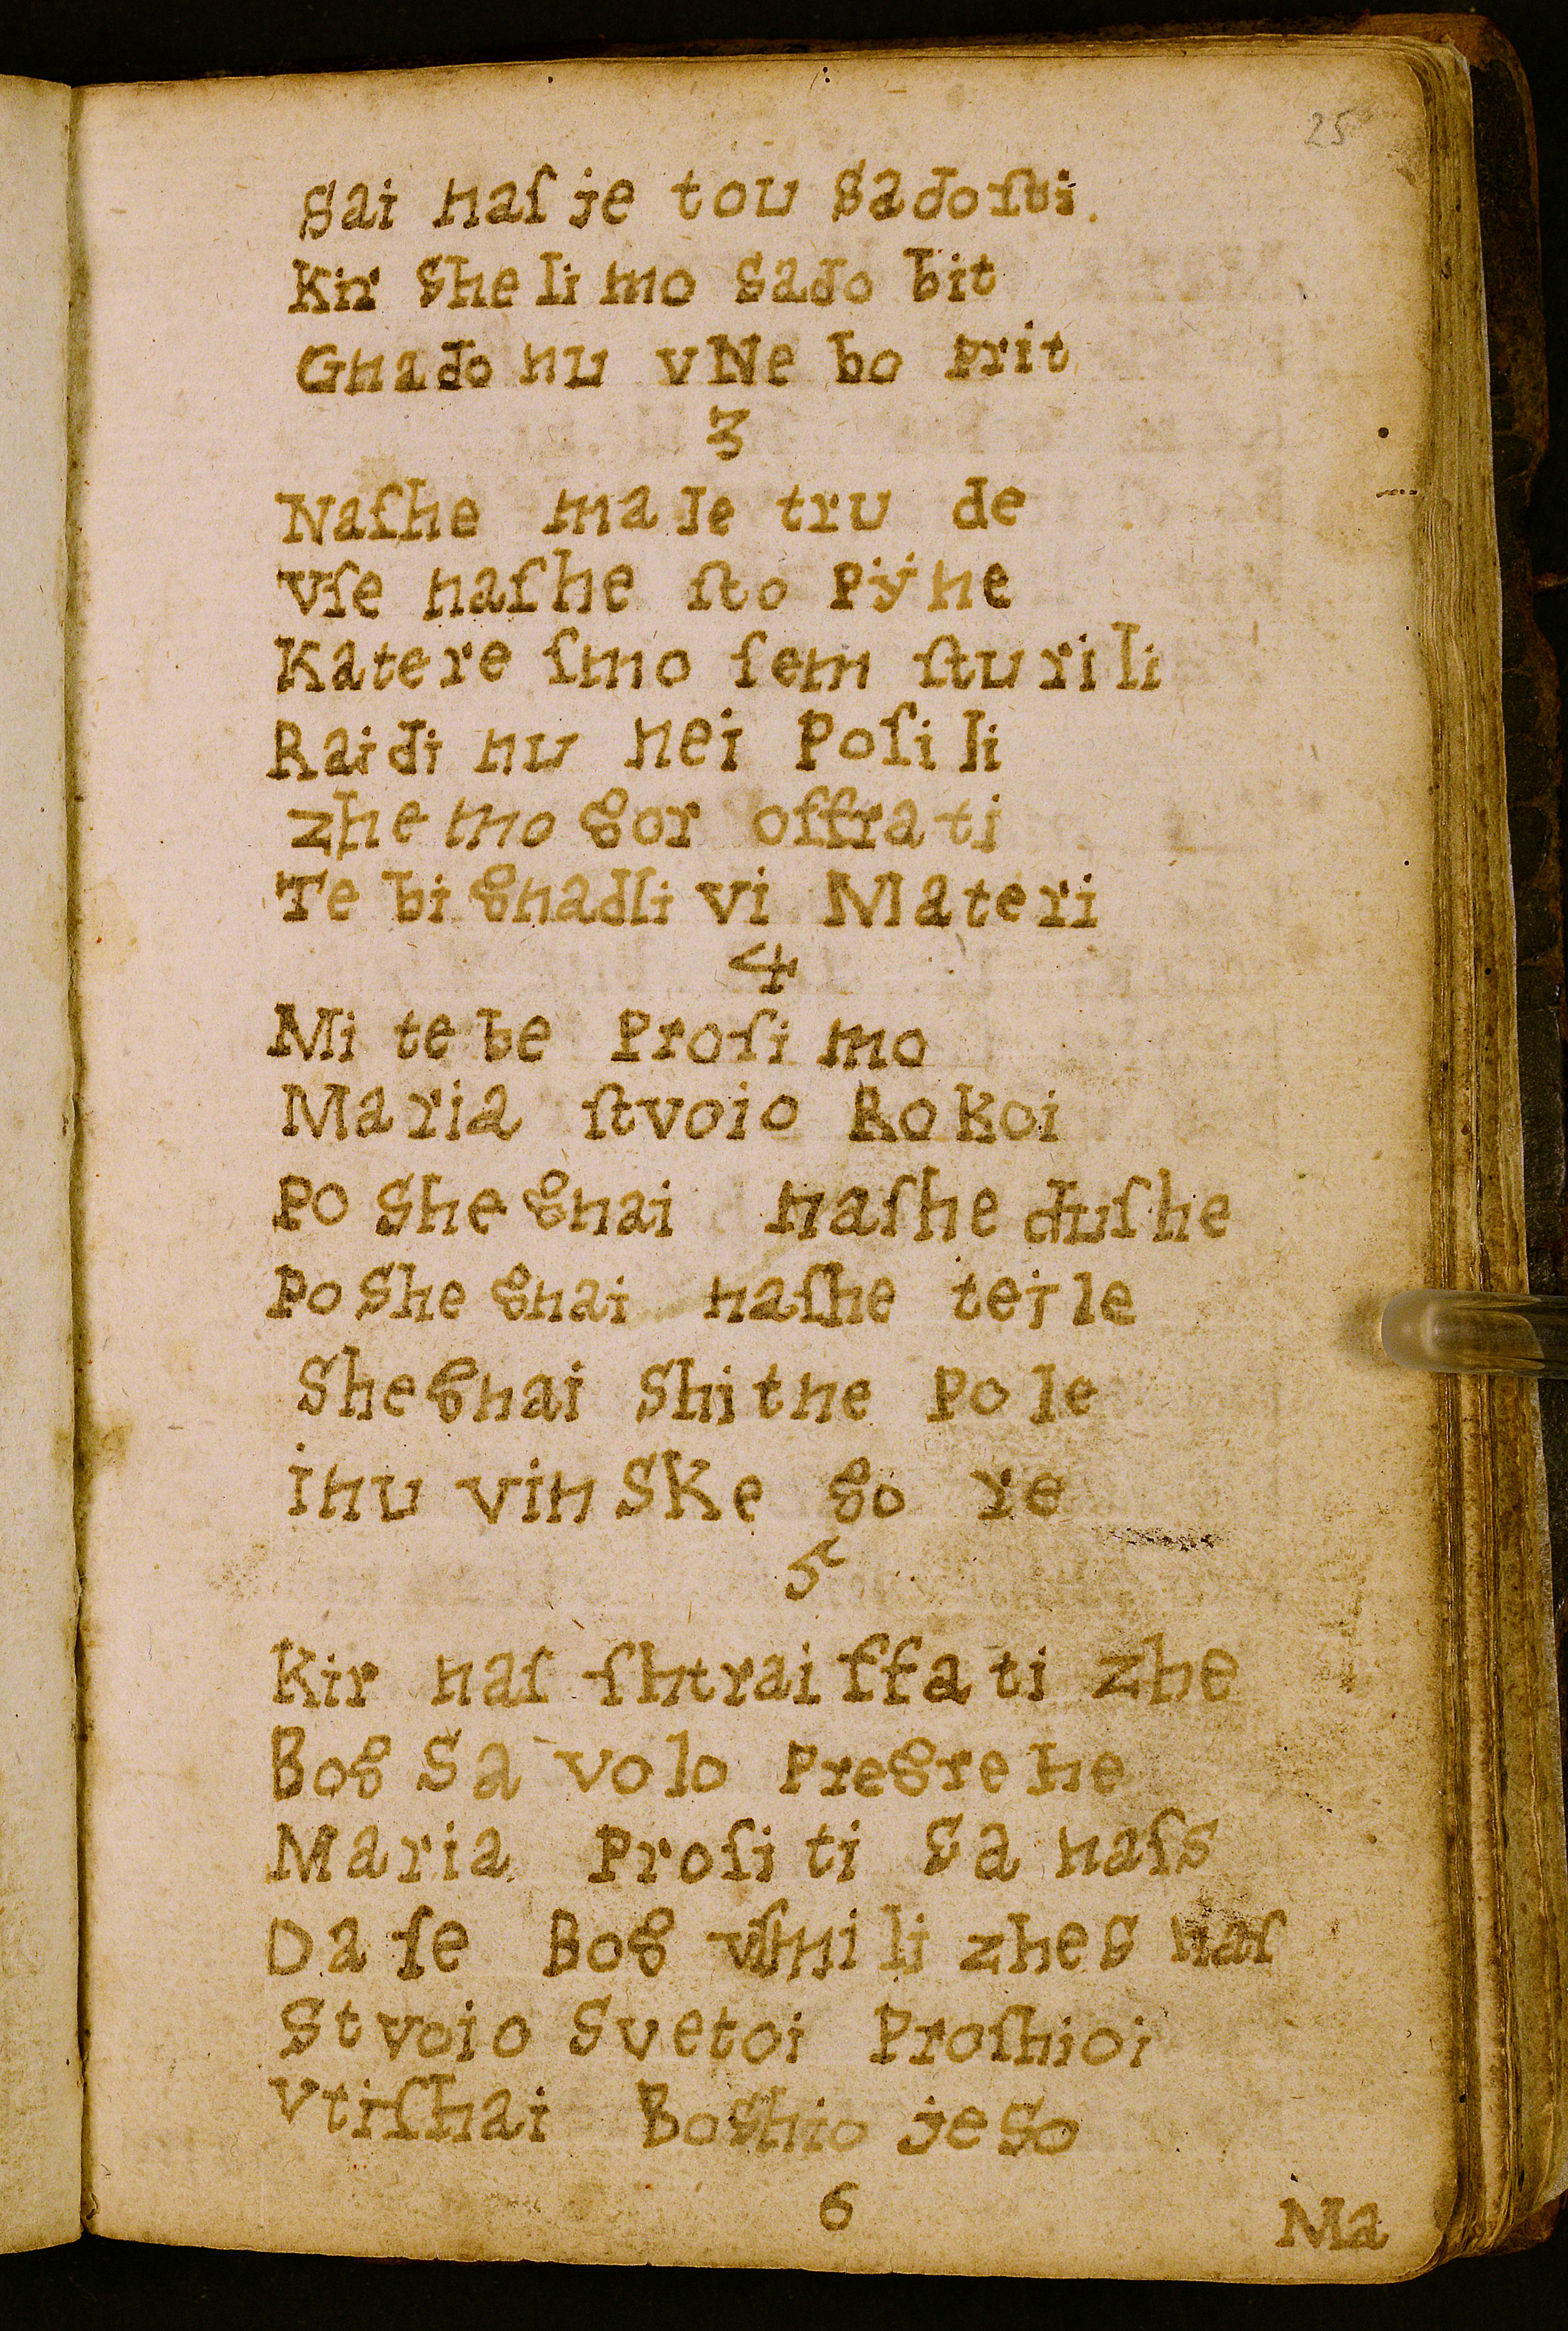 25
Sai naſ je tou Sadoſti.
Kir She li mo Sado bit
Gnado nu vNe bo Prit
3
Naſhe ma le tru de
Vſe naſhe ſto Pÿne
Katere ſmo ſem ſturili
Raidi nu nei Poſili
zhe mo gor offrati
Te bi gnadli vi Materi
4
Mi te be Proſi mo
Maria ſtvoio Rokoi
Po She gnai naſhe duſhe
Po She gnai naſhe tejle
Shegnai Shitne Pole
inu vinSKe go re
5
Kir naſ ſhtraiffati zhe
Bog Sa volo Pregrehe
Maria Proſi ti Sa naſs
Da ſe Bog vſmili zhes naſ
Stvoio Svetoi Proſhioi
Vtiſhai Boshio jeSo
6
Ma